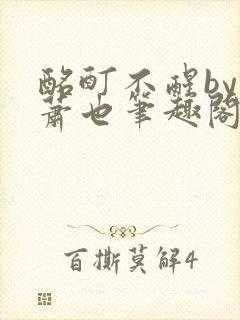 酩酊不醒by
萧也笔趣阁
百撕莫解4